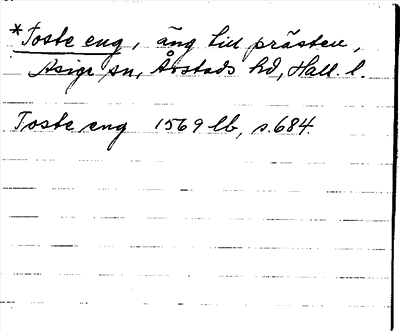 *Toste eng, äng till prästen,
Asige sn, Årstads hd, Hall. l.
Toste eng 1569 lb, s.684.